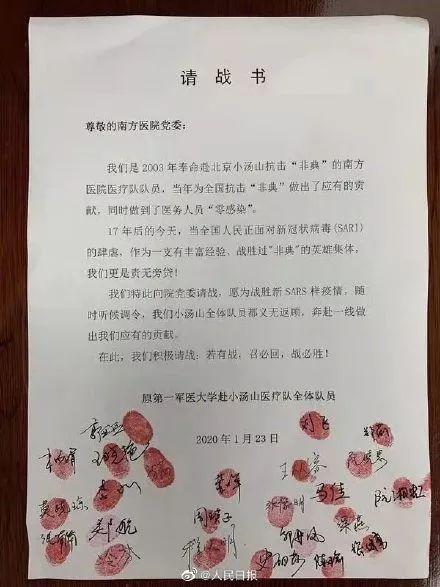 请战书
尊敬的南方医院党委：
我们是2003年奉命赴北京小汤山抗击“非典”的南方
医院医疗队队员，当年为全国抗击“非典”做出了应有的贡
献，同时做到了医务人员“零感染”。
17年后的今天，当全国人民正面对新冠状病毒（SARI）
的肆虐，作为一支有丰富经验、战胜过“非典”的英雄集体，
我们更是责无旁贷！
我们特此向院党委请战，愿为战胜新SARS样疫情，随
时听候调令，我们小汤山全体队员都义无返顾，奔赴一线做
出我们应有的贡献。
在此，我们积极请战：若有战，召必回，战必胜！
原第一军医大学赴小汤山医疗队全体队员
2020年1月23日
刘飞
马佳
@人民日报